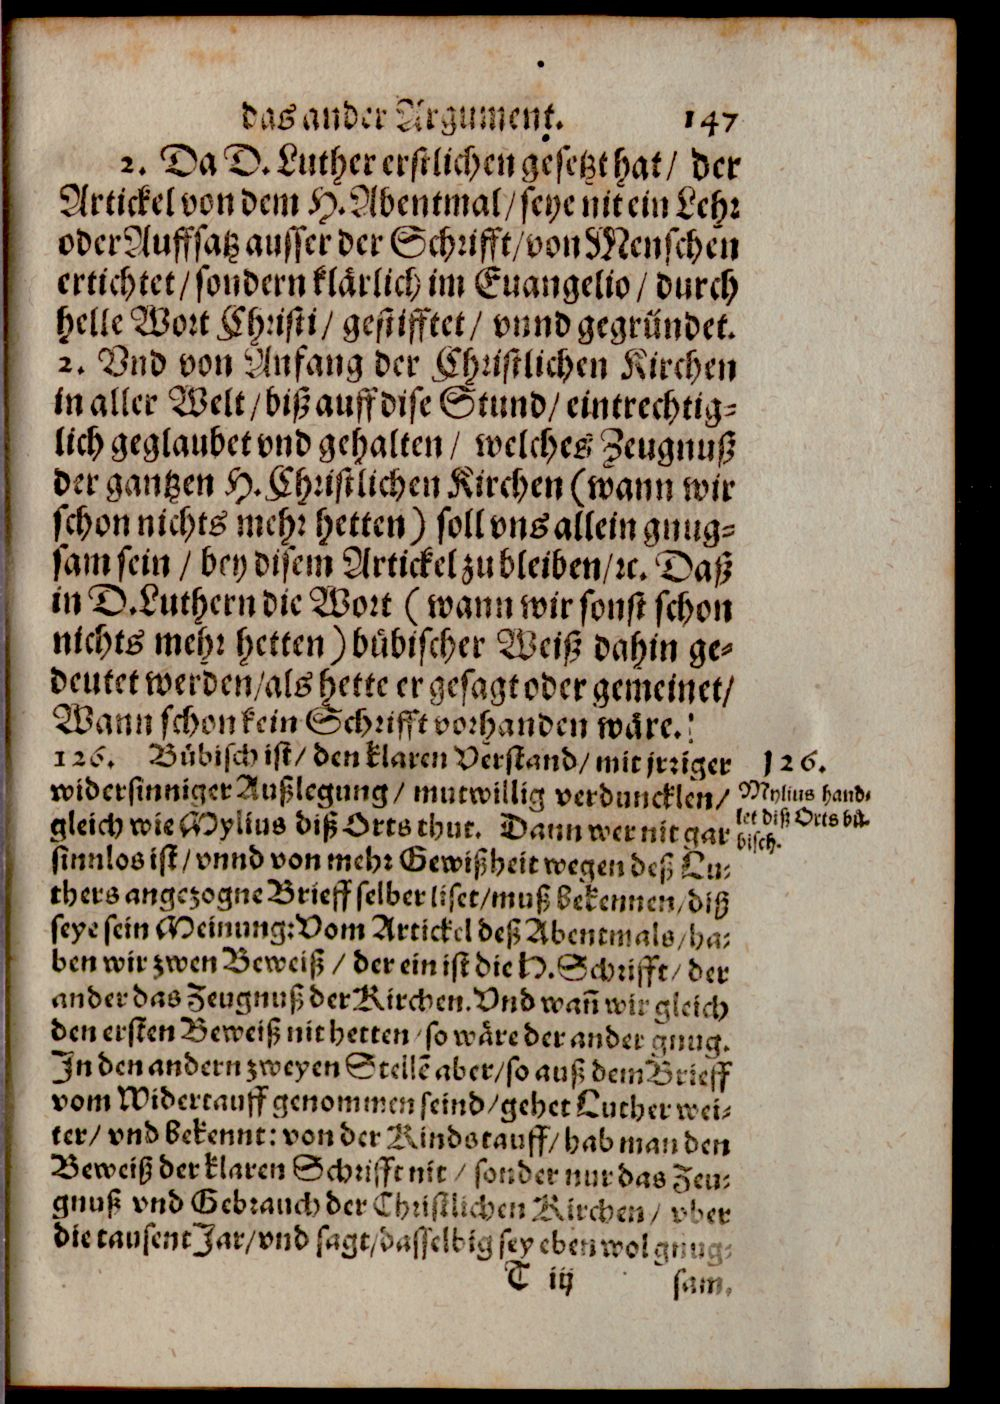 das ander Argument. 147
2. Da D. Luther erstlichen gesetzt hat / der
Artickel von dem H. Abentmal / seye nit ein Lehr
oder Auffsatz ausser der Schrifft / von Menschen
ertichtet / sondern klärlich im Euangelio / durch
helle Wort Christi / gestifftet / vnnd gegründet.
2. Vnd von Anfang der Christlichen Kirchen
in aller Welt / biß auff dise Stund / eintrechtig-
lich geglaubet vnd gehalten / welches Zeugnuß
der gantzen H. Christlichen Kirchen (wann wir
schon nichts mehr hetten) soll vns allein gnug-
sam sein / bey disem Artickel zu bleiben / ꝛc. Daß
in D. Luthern die Wort (wann wir sonst schon
nichts mehr hetten) bübischer Weiß dahin ge-
deutet werden / als hette er gesagt oder gemeinet /
Wann schon kein Schrifft vorhanden wäre.
126. Bübisch ist / den klaren Verstand / mit jrriger
widersinniger Außlegung / mutwillig verduncklen /
gleich wie Mylius diß Orts thut. Dann wer nit gar
sinnlos ist / vnnd von mehr Gewißheit wegen deß Lu-
thers angezogne Brieff selber liset / muß bekennen / diß
seye sein Meinung: Vom Artickel deß Abentmals / ha-
ben wir zwen Beweiß / der ein ist die H. Schrifft / der
ander das Zeugnuß der Kirchen. Vnd wañ wir gleich
den ersten Beweiß nit hetten / so wäre der ander gnug.
In den andern zweyen Stellẽ aber / so auß dem Brieff
vom Widertauff genommen seind / gehet Luther wei-
ter / vnd bekennt: von der Kindstauff / hab man den
Beweiß der klaren Schrifft nit / sonder nur das Zeu-
gnuß vnd Gebrauch der Christlichen Kirchen / vber
die tausent Jar / vnd sagt / dasselbig sey eben wol gnug-
T iij sam.
126.
Mylius hand-
let diß Orts bü-
bisch.